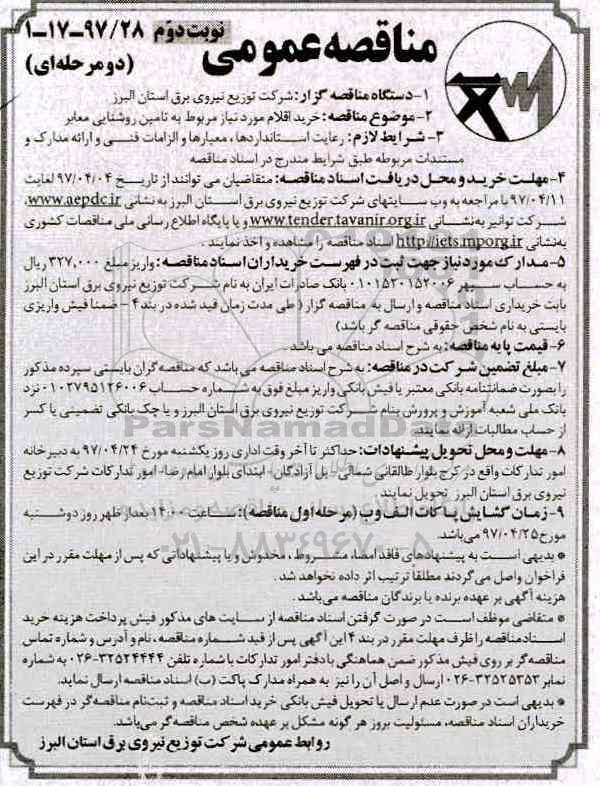 مناقصه عمومی
نوبت دوّم ۲۸/۹۷-۱۷-۱
(دو مرحله‌ای)
۱-دستگاه مناقصه گزار: شرکت توزیع نیروی برق استان البرز
۲-موضوع مناقصه: خرید اقلام مورد نیاز مربوط به تامین روشنایی معابر
۳-شرایط لازم: رعایت استانداردها، معیارها و الزامات فنی و ارائه مدارک و
مستندات مربوطه طبق شرایط مندرج در اسناد مناقصه
۴-مهلت خرید و محل دریافت اسناد مناقصه: متقاضیان می توانند از تاریخ ۹۷/۰۴/۰۴ لغایت
۹۷/۰۴/۱۱ با مراجعه به وب سایتهای شرکت توزیع نیروی برق استان البرز به نشانی www.aepdc.ir،
شرکت توانیر به‌نشانی www.tender.tavanir.org.ir و یا پایگاه اطلاع رسانی ملی مناقصات کشوری
به‌نشانی http://iets.mporg.ir اسناد مناقصه را مشاهده و اخذ نمایند.
۵-مدارک مورد نیاز جهت ثبت در فهرست خریداران اسناد مناقصه: واریز مبلغ ۳۲۷,۰۰۰ ریال
به حساب سپهر ۰۱۰۱۵۲۰۱۵۲۰۰۶ بانک صادرات ایران به نام شرکت توزیع نیروی برق استان البرز
بابت خریداری اسناد مناقصه و ارسال به مناقصه گزار (طی مدت زمان قید شده در بند ۴ - ضمنا فیش واریزی
بایستی به نام شخص حقوقی مناقصه گر باشد)
۶-قیمت پایه مناقصه: به شرح اسناد مناقصه می باشد.
۷-مبلغ تضمین شرکت در مناقصه: به شرح اسناد مناقصه می باشد که مناقصه‌گران بایستی سپرده مذکور
را بصورت ضمانتنامه بانکی معتبر یا فیش بانکی واریز مبلغ فوق به شماره حساب ۰۱۰۲۷۹۵۱۲۶۰۰۶ نزد
بانک ملی شعبه آموزش و پرورش بنام شرکت توزیع نیروی برق استان البرز و یا چک بانکی تضمینی یا کسر
از حساب مطالبات ارائه نمایند.
۸-مهلت و محل تحویل پیشنهادات: حداکثر تا آخر وقت اداری روز یکشنبه مورخ ۹۷/۰۴/۲۴ به دبیرخانه
امور تدارکات واقع در کرج بلوار طالقانی شمالی- پل آزادگان- ابتدای بلوار امام رضا- امور تدارکات شرکت توزیع
نیروی برق استان البرز تحویل نمایند.
۹-زمان گشایش پاکات الف و ب (مرحله اول مناقصه): ساعت ۱۴:۰۰ بعداز ظهر روز دوشنبه
مورخ ۹۷/۰۴/۲۵ می‌باشد.
* بدیهی است به پیشنهادهای فاقد امضاء، مشروط، مخدوش و یا پیشنهاداتی که پس از مهلت مقرر در این
فراخوان واصل می‌گردند مطلقاً ترتیب اثر داده نخواهد شد.
هزینه آگهی بر عهده برنده یا برندگان مناقصه می‌باشد.
* متقاضی موظف است در صورت گرفتن اسناد مناقصه از سایت های مذکور فیش پرداخت هزینه خرید
اسناد مناقصه را ظرف مهلت مقرر در بند ۴ این آگهی پس از قید شماره مناقصه، نام و آدرس و شماره تماس
مناقصه‌گر بر روی فیش مذکور ضمن هماهنگی با دفتر امور تدارکات با شماره تلفن ۳۲۵۲۴۴۴۴-۰۲۶ به شماره
نمابر ۳۲۵۲۵۳۵۳-۰۲۶ ارسال و اصل آن را نیز به همراه مدارک پاکت (ب) اسناد مناقصه ارسال نماید.
* بدیهی است در صورت عدم ارسال یا تحویل فیش بانکی خرید اسناد مناقصه و ثبت‌نام مناقصه‌گر در فهرست
خریداران اسناد مناقصه، مسئولیت بروز هر گونه مشکل بر عهده شخص مناقصه‌گر می‌باشد.
روابط عمومی شرکت توزیع نیروی برق استان البرز
ParsNamadData
۰۲۱-۸۸۳۴۹۶۷۰-۵